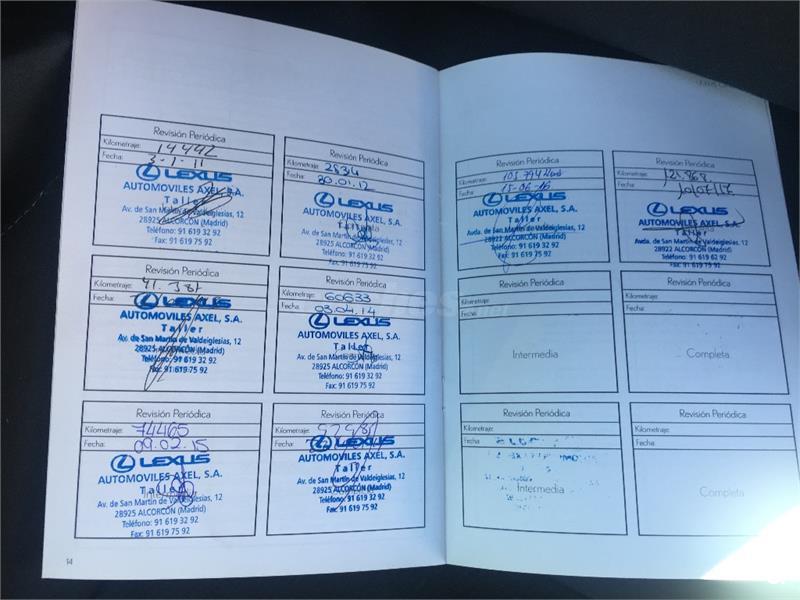 Revisión Periódica
Kilometraje: 14442
Fecha: 3-1-11
LEXUS
AUTOMOVILES AXEL, S.A.
Taller
Av. de San Martín de Valdeiglesias, 12
28925 ALCORCÓN (Madrid)
Teléfono: 91 619 32 92
Fax: 91 619 75 92
Revisión Periódica
Kilometraje: 2834
Fecha: 30.01.12
LEXUS
AUTOMOVILES AXEL, S.A.
Taller
Av. de San Martín de Valdeiglesias, 12
28925 ALCORCÓN (Madrid)
Teléfono: 91 619 32 92
Fax: 91 619 75 92
Revisión Periódica
Kilometraje:
Fecha:
LEXUS
AUTOMOVILES AXEL, S.A.
Taller
Av. de San Martín de Valdeiglesias, 12
28925 ALCORCÓN (Madrid)
Teléfono: 91 619 32 92
Fax: 91 619 75 92
Revisión Periódica
Kilometraje: 60633
Fecha: 03.04.14
LEXUS
AUTOMOVILES AXEL, S.A.
Taller
Av. de San Martín de Valdeiglesias, 12
28925 ALCORCÓN (Madrid)
Teléfono: 91 619 32 92
Fax: 91 619 75 92
Revisión Periódica
Kilometraje: 74465
Fecha: 09.02.15
LEXUS
AUTOMOVILES AXEL, S.A.
Taller
Av. de San Martín de Valdeiglesias, 12
28925 ALCORCÓN (Madrid)
Teléfono: 91 619 32 92
Fax: 91 619 75 92
Revisión Periódica
Kilometraje:
Fecha:
LEXUS
AUTOMOVILES AXEL, S.A.
Taller
Av. de San Martín de Valdeiglesias, 12
28925 ALCORCÓN (Madrid)
Teléfono: 91 619 32 92
Fax: 91 619 75 92
14
Revisión Periódica
Kilometraje: 103.794
Fecha: 15-06-16
LEXUS
AUTOMOVILES AXEL, S.A.
Taller
Avda. de San Martín de Valdeiglesias, 12
28922 ALCORCÓN (Madrid)
Teléfono: 91 619 32 92
Fax: 91 619 75 92
Revisión Periódica
Kilometraje: 121.868
Fecha: 10/07/17
LEXUS
AUTOMOVILES AXEL, S.A.
Taller
Avda. de San Martín de Valdeiglesias, 12
28922 ALCORCÓN (Madrid)
Teléfono: 91 619 32 92
Fax: 91 619 75 92
Revisión Periódica
Kilometraje:
Fecha:
Intermedia
Revisión Periódica
Kilometraje:
Fecha:
Completa
Revisión Periódica
Kilometraje:
Fecha:
Intermedia
Revisión Periódica
Kilometraje:
Fecha:
Completa